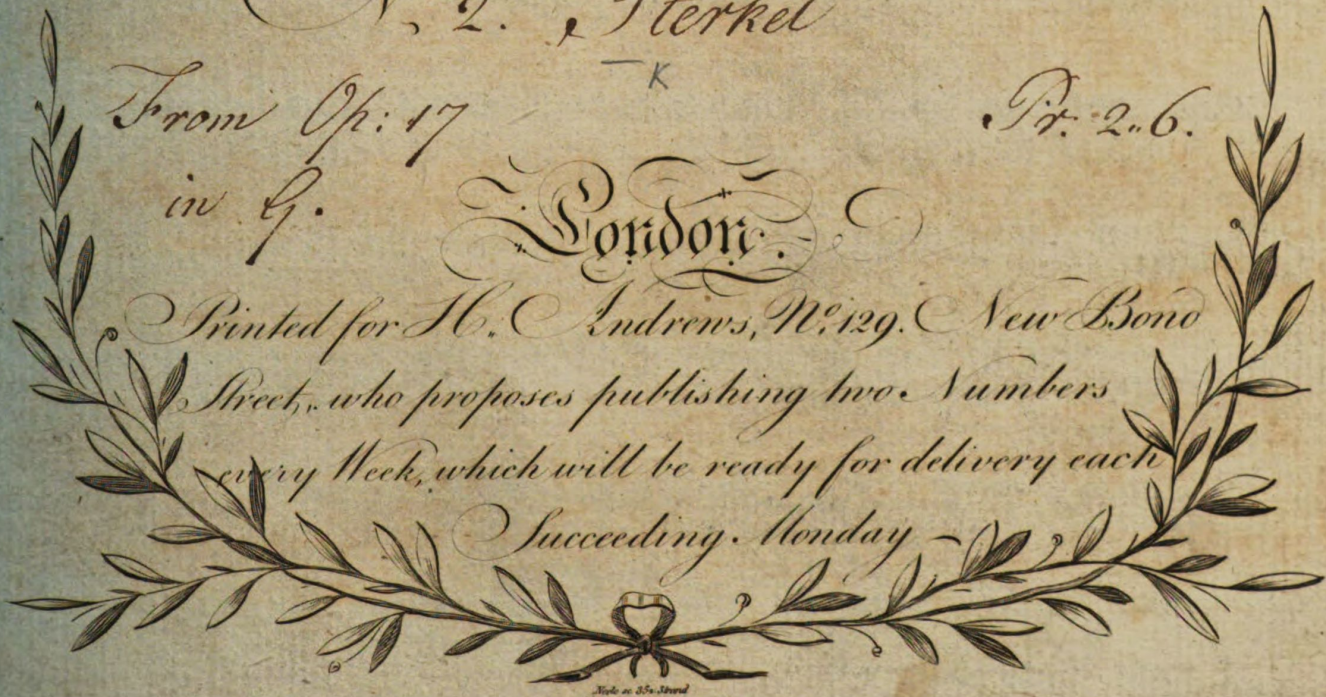 N. 2. Sterkel
K
From Op: 17
Pr. 2..6.
in G.
London.
Printed for H. Andrews, No. 129. New Bond
Street, who proposes publishing two Numbers
every Week, which will be ready for delivery each
Succeeding Monday
Neele sc. 352 Strand